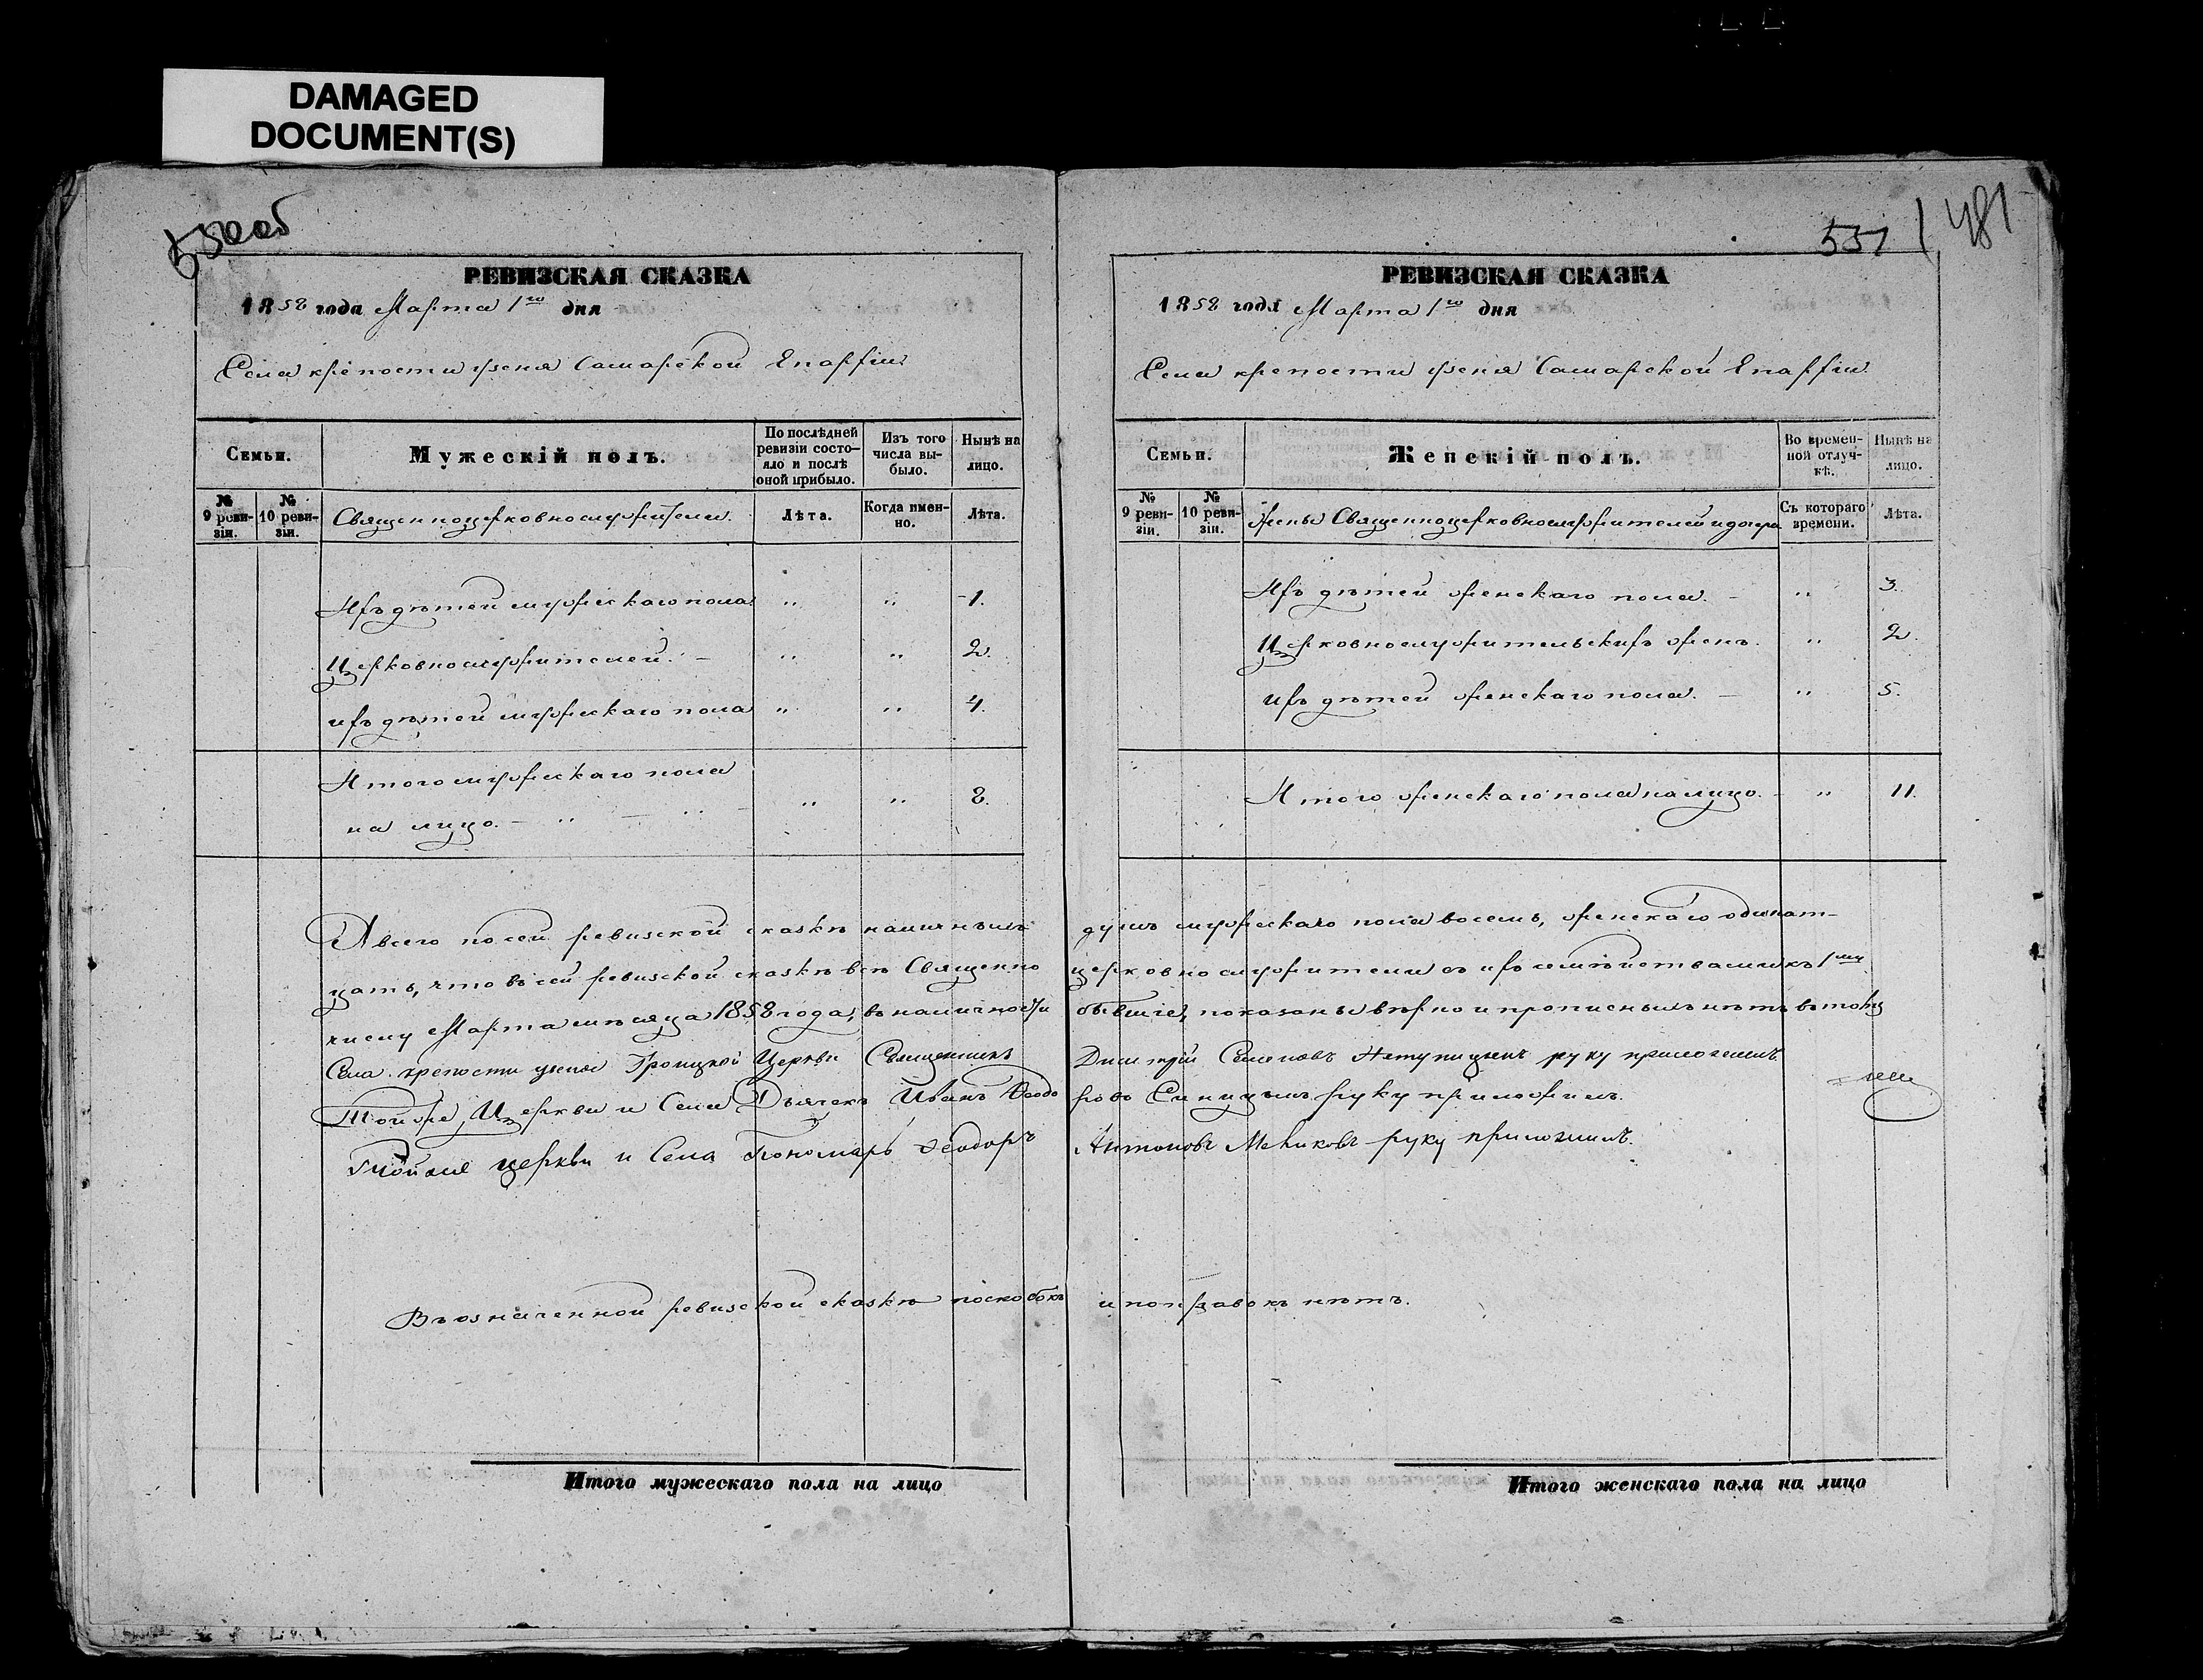 DAMAGED
DOCUMENT(S)
530об
РЕВИЗСКАЯ СКАЗКА
1858 года Марта 1го дня
Села крепости Узеня Самарской Епархіи
Семьи.
Мужескій полъ.
По послѣдней ревизіи состояло и послѣ оной прибыло.
Изъ того числа выбыло.
Нынѣ на лицо.
№ 9 ревизіи.
№ 10 ревизіи.
Священноцерковнослужители.
Лѣта.
Когда именно.
Лѣта.
Ихъ дѣтей мужескаго пола „ „ 1.
Церковнослужителей. – „ „ 2.
ихъ дѣтей мужескаго пола „ „ 4.
Итого мужескаго пола
на лицо. – „ – „ – „ „ 8.
551 / 481
РЕВИЗСКАЯ СКАЗКА
1858 года Марта 1го дня
Села крепости Узеня Самарской Епархіи
Семьи.
Женскій полъ.
Во временной отлучкѣ.
Нынѣ на лицо.
№ 9 ревизіи.
№ 10 ревизіи.
Жены Священноцерковнослужителей и дочери
Съ котораго времени.
Лѣта.
Ихъ дѣтей женскаго пола. – „ 3.
Церковнослужительскихъ женъ. „ 2.
ихъ дѣтей женскаго пола. – „ 5.
Итого женскаго пола на лицо. – „ 11.
А всего по сей ревизской сказкѣ наличныхъ душъ мужескаго пола восемь, женскаго одинат-
цать, что въ сей ревизской сказкѣ всѣ Священно церковнослужители съ ихъ семѣйствами къ 1му
числу Марта мѣсяца 1858 года, въ наличности бывшіе, показаны вѣрно и прописныхъ нѣтъ въ том
Села крепости узеня Троицкой Церкви Священникъ Димитрій Семеновъ руку приложилъ
Той же Церкви и Села Дьячекъ Иванъ Ѳеодоровъ Синицынъ руку приложилъ.
Тойже церкви и Села Пономарь Ѳеодоръ Антоновъ руку приложилъ.
Въ означенной ревизской сказкѣ поскобокъ и поправокъ нѣтъ.
Итого мужескаго пола на лицо
Итого женскаго пола на лицо